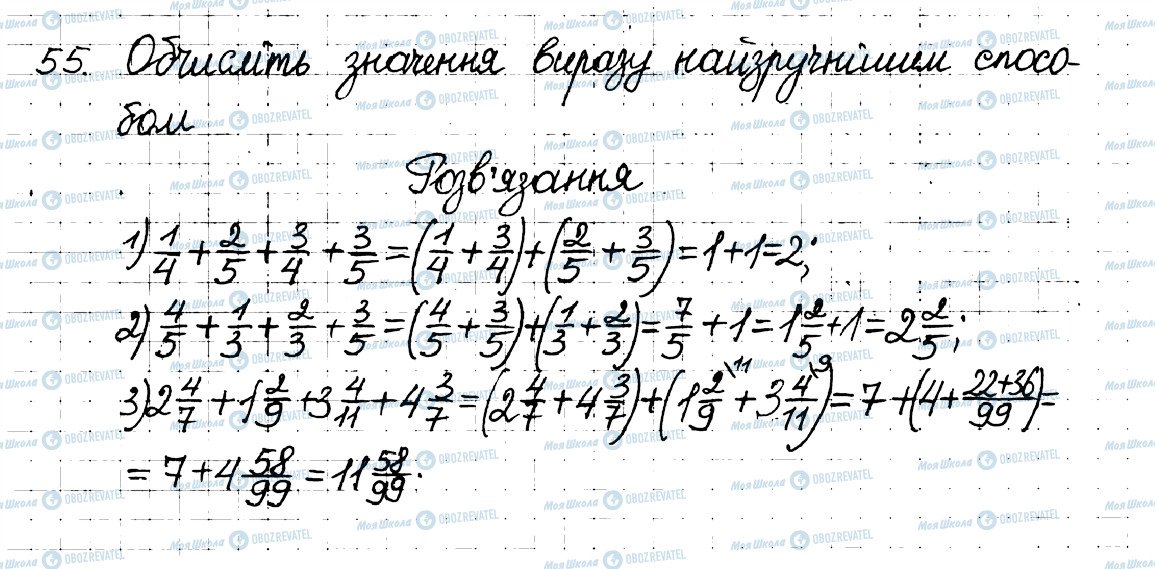 55. Обчисліть значення виразу найзручнішим спосо-
бом
Розв'язання
1) 1/4 + 2/5 + 3/4 + 3/5 = (1/4 + 3/4) + (2/5 + 3/5) = 1 + 1 = 2;
2) 4/5 + 1/3 + 2/3 + 3/5 = (4/5 + 3/5) + (1/3 + 2/3) = 7/5 + 1 = 1 2/5 + 1 = 2 2/5;
3) 2 4/7 + 1 2/9 + 3 4/11 + 4 3/7 = (2 4/7 + 4 3/7) + (1 2/9 \11 + 3 4/11 \9) = 7 + (4 + (22+36)/99) =
= 7 + 4 58/99 = 11 58/99.
МояШкола OBOZREVATEL